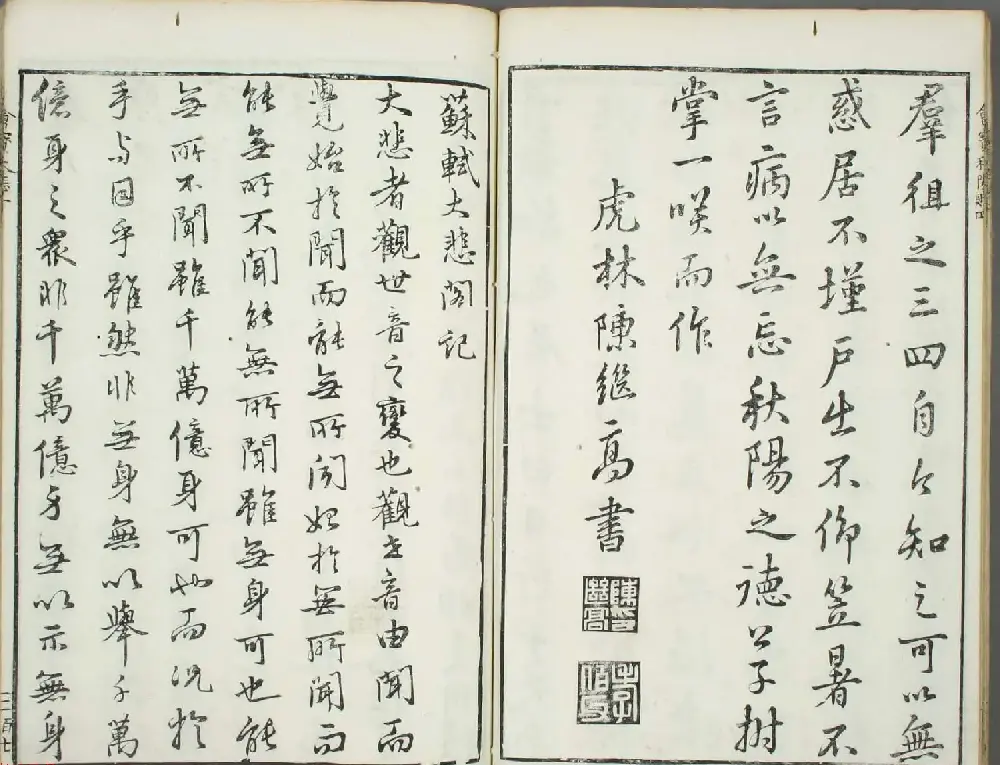 羣徂之三四自今知之可以無
惑居不墐戶出不仰笠暑不
言病以無忘秋陽之德公子拊
掌一咲而作
虎林陳繼高書
蘇軾大悲閣記
大悲者觀世音之變也觀世音由聞而
覺始於聞而能無所聞始於無所聞而
能無所不聞能無所聞雖無身可也能
無所不聞雖千萬億身可也而況於
手與目乎雖然非無身無以舉千萬
億身之衆非千萬億身無以示無身